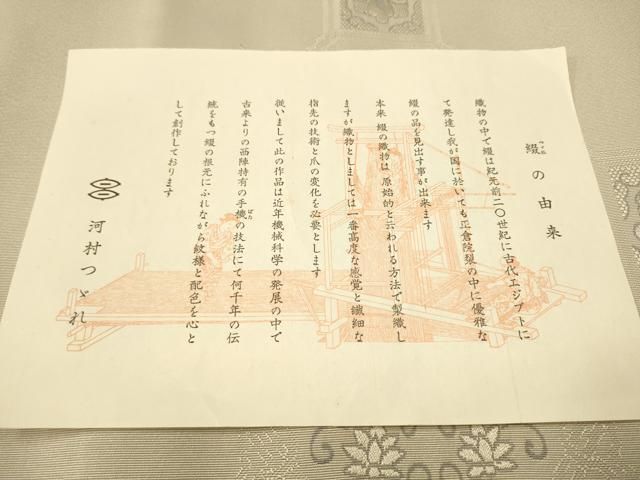 綴の由来
つづれ
織物の中で綴は紀元前二〇世紀に古代エジプトに
て発達し我が国に於いても正倉院裂の中に優雅な
綴の品を見出す事が出来ます
本来 綴の織物は 原始的と云われる方法で製織し
ますが織物としましては一番高度な感覚と繊細な
指先の技術と爪の変化を必要とします
従いまして此の作品は近年機械科学の発展の中で
古来よりの西陣特有の手機の技法にて何千年の伝
ばた
統をもつ綴の根元にふれながら紋様と配色を心と
して創作しております
河村つゞれ